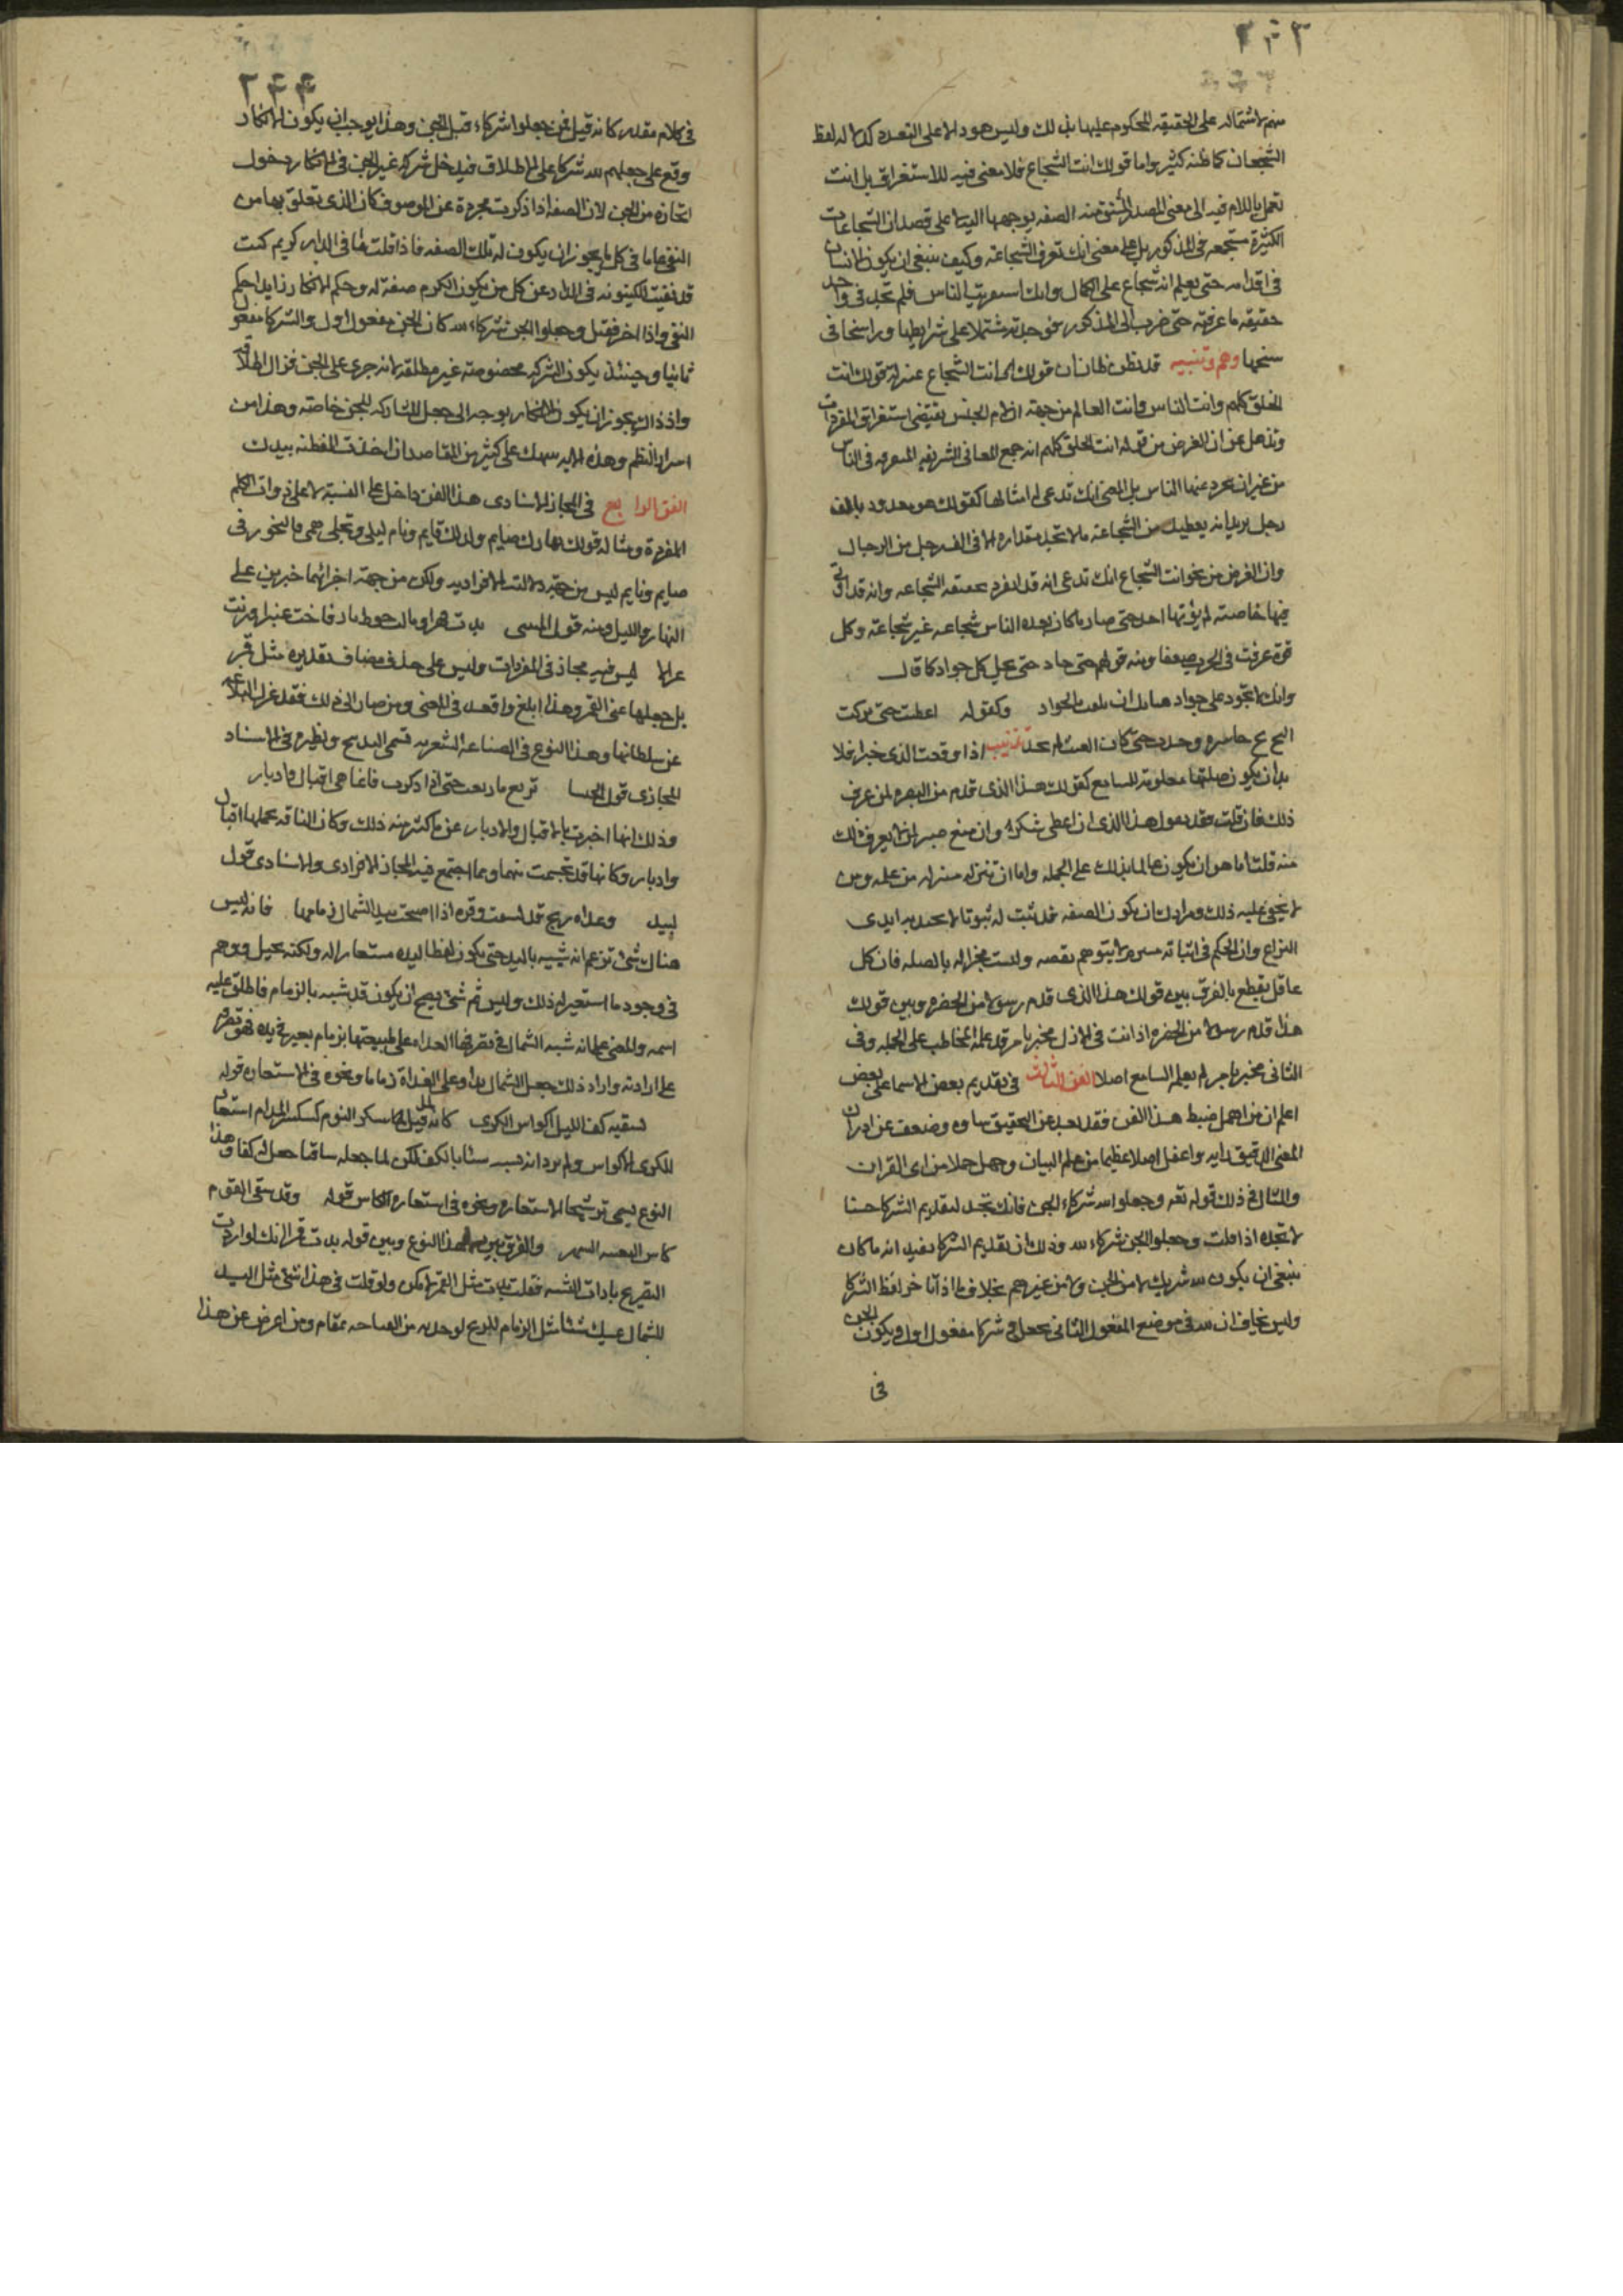 ٢٤٣
منهم لاشتماله على الحقيقه المحكوم عليها بذلك وليس هو دالا على التعدد كدلاله لفظ
الشجعان كما ظنه كثير واما قولك انت الشجاع فلا معنى فيه للاستغراق بل انت
تعمل باللام فيه الى معنى المصدر المشتق منه الصفه يوجهها اليه لا على قصد ان الشجاعات
الكثيرة مجتمعه فى المذكور بل على معنى انك تعرف الشجاعة وكيف ينبغى ان يكون الانسان
فى اقدامه حتى يعلم انه شجاع على الكمال وانك استعريت الناس فلم تجد فى واحد
حقيقه ما عرفته حتى ضرب الى المذكور فوجدته مشتملا على شرايطها وراسخا فى
سنخها وهم وتنبيه قد يظن ظان ان قولك انت الشجاع بمنزلة قولك انت
الخلق كلهم وانت الناس وانت العالم من جهة ان لام الجنس يقتضى استغراق المفردات
وتذهل عن ان الغرض من قوله انت الخلق كلهم انه جمع المعانى الشريفه المتفرقه فى الناس
من غير ان يجرد عنها الناس بل المعنى انك تدعى له امثالها كقولك هو معدود بالف
رجل يريد انه يعطيك من الشجاعة ما لا تجد مقداره الا فى الف رجل من الرجال
وان الغرض من نحو انت الشجاع انك تدعى انه قد انفرد بحقيقه الشجاعه وانه قد اوتى
فيها خاصة لم يؤتها احد حتى صار ما كان يعده الناس شجاعه غير شجاعة وكل
قوة عرفت فى الحرب ضعفا ومنه قولهم حتى جاد حتى بخل كل جواد كما قال
وانك لا تجود على جواد هباتك ان يلقب بالجواد وكقوله اعطيت حتى تركت
الريح حاسره وجدت حتى كان الغيث لم يجد تذنيب اذا وقعت الذى خبرا فلا
بد ان يكون صلتها معلومة للسامع كقولك هذا الذى قدم من البصره لمن عرف
ذلك فان قلت فقد يقول هذا الذى ان اعطى شكره وان منع صبر لمن لا يعرف ذلك
منه قلت اما هو ان يكون عالما بذلك على الجمله واما ان تنزله منزله من علمه ومن
لا يخفى عليه ذلك ومرادك ان يكون الصفه قد ثبت له ثبوتا لا يجد به ايدى
النزاع وان الحكم فى اثباته لا يتوهم نقصه ولست مخبرا له بالصله فان كل
عاقل يقطع بالفرق بين قولك هذا الذى قدم رسولا من الحضره وبين قولك
هذا قدم رسولا من الحضره اذ انت فى الاول مخبر بامر قد علمه المخاطب على الجمله وفى
الثانى مخبر بامر لم يعلمه السامع اصلا الفن الثالث فى تقديم بعض الاسما على بعض
اعلم ان من اهمل ضبط هذا الفن فقد بعد عن التحقيق وضعف عن ادراك
المعنى الدقيق رايه واغفل اصلا عظيما من علم البيان وجهل جملا من اى القران
والمثال فى ذلك قوله تعه وجعلوا لله شركاء الجن فانك تجد لتقديم الشركا حسنا
لا تجده اذا قلت وجعلوا الجن شركاء لله وذلك ان تقديم الشركا يفيد انه ما كان
ينبغى ان يكون لله شريك لا من الجن ولا من غيرهم بخلاف ما اذا اخر لفظ الشركا
وليس بخاف ان لله فى موضع المفعول الثانى بجعل وشركا مفعول اول ويكون الجن
فى
٢٤٤
فى كلام مقدر كانه قيل فمن جعلوا شركاء فقيل الجن وهذا يوجب ان يكون الانكار
وقع على جعلهم لله شركا على الاطلاق فيدخل شركه غير الجن فى الانكار دخول
اتخاذه من الجن لان الصفه اذا ذكرت مجردة عن الموصوف كان الذى تعلق بها من
النفى عاما فى كل ما يجوز ان يكون له تلك الصفه فاذا قلت ما فى الدار كريم كنت
قد نفيت الكينونه فى الدار عن كل من يكون الكرم صفة له وحكم الانكار ابدا حكم
النفى واذا اخر فقيل وجعلوا الجن شركاء لله كان الجن مفعول اول والشركا مفعولا
ثانيا وحينئذ يكون الشركه مخصوصة غير مطلقه لانه جرى على الجن فزال اطلاقه
واذ ذاك يجوز ان يكون الانكار توجه الى جعل المشاركه للجن خاصة وهذا من
اسرار النظم وهذه الايه على كثير من المقاصد ان اخذت الفطنه بيدك
الفن الرابع فى المجاز الاسنادى هذا الفن داخل على النسبة لا على ذوات الكلم
المفردة ومثاله قولك نهارك صايم وليلك قايم ونام ليلى وتجلى همى فالتجوز فى
صايم وقايم ليس من جهة دلالته الافراديه ولكن من جهة اجرائهما خبرين على
النهار والليل ومنه قول المتنبى بدت قمرا ومالت خوط بان وفاحت عنبرا ورنت
غزالا ليس فيه مجاز فى المفردات وليس على حذف مضاف تقديره مثل قمر
بل جعلها عين القمر وهذا ابلغ واقعد فى المعنى ومن صار الى ذلك فقد عزل البلاغه
عن سلطانها وهذا النوع فى الصناعه الشعريه قسمى البديع ونظيره فى الاسناد
المجازى قول الخنسا ترتع ما رتعت حتى اذا ادكرت فانما هى اقبال وادبار
وذلك انها اخبرت بالاقبال والادبار عن ما كثر منه ذلك وكان الناقه بجملها اقبال
وادبار وكانها قد تجسمت منهما ومما اجتمع فيه المجاز الافرادى والاسنادى قول
لبيد وغداه ريح قد كشفت وقره اذا اصبحت بيد الشمال زمامها فانه ليس
هناك شئ تزعم انه شبيه باليد حتى يكون لفظ اليد مستعار اله ولكنه تخيل وتوهم
فى وجود ما استعير له ذلك وليس ثم شئ يصح ان يكون قد شبه بالزمام فاطلق عليه
اسمه والمعنى على انه شبه الشمال فى تصرفها الغداه على طبيعتها بزمام بعير فى يده فهو تصرفه
على ارادته واراد ذلك جعل للشمال يدا وعلى الغداة زماما ونحوه فى الاستعاره قوله
تسقيه كف الليل اكواس الكرى كانه قيل سكر النوم كسكر المدام استعار
للكرى الاكواس ولم يرد انه شبه شئا بالكف لكن لما جعله ساقيا جعل له كفا وهذا
النوع يسمى ترشيحا لاستعاره ونحوه فى استعاره الكاس قوله وقد سقى القوم
كاس النعسه السهر والفرق بين هذا النوع وبين قوله بدت قمرا انك لو اردت
التصريح باداه التشبيه فقلت بدت مثل القمر لامكن ولو قلت فى هذا شئ مثل اليد
للشمال شئا مثل الزمام لم من الفصاحه بمقام ومن اعرض عن هذا